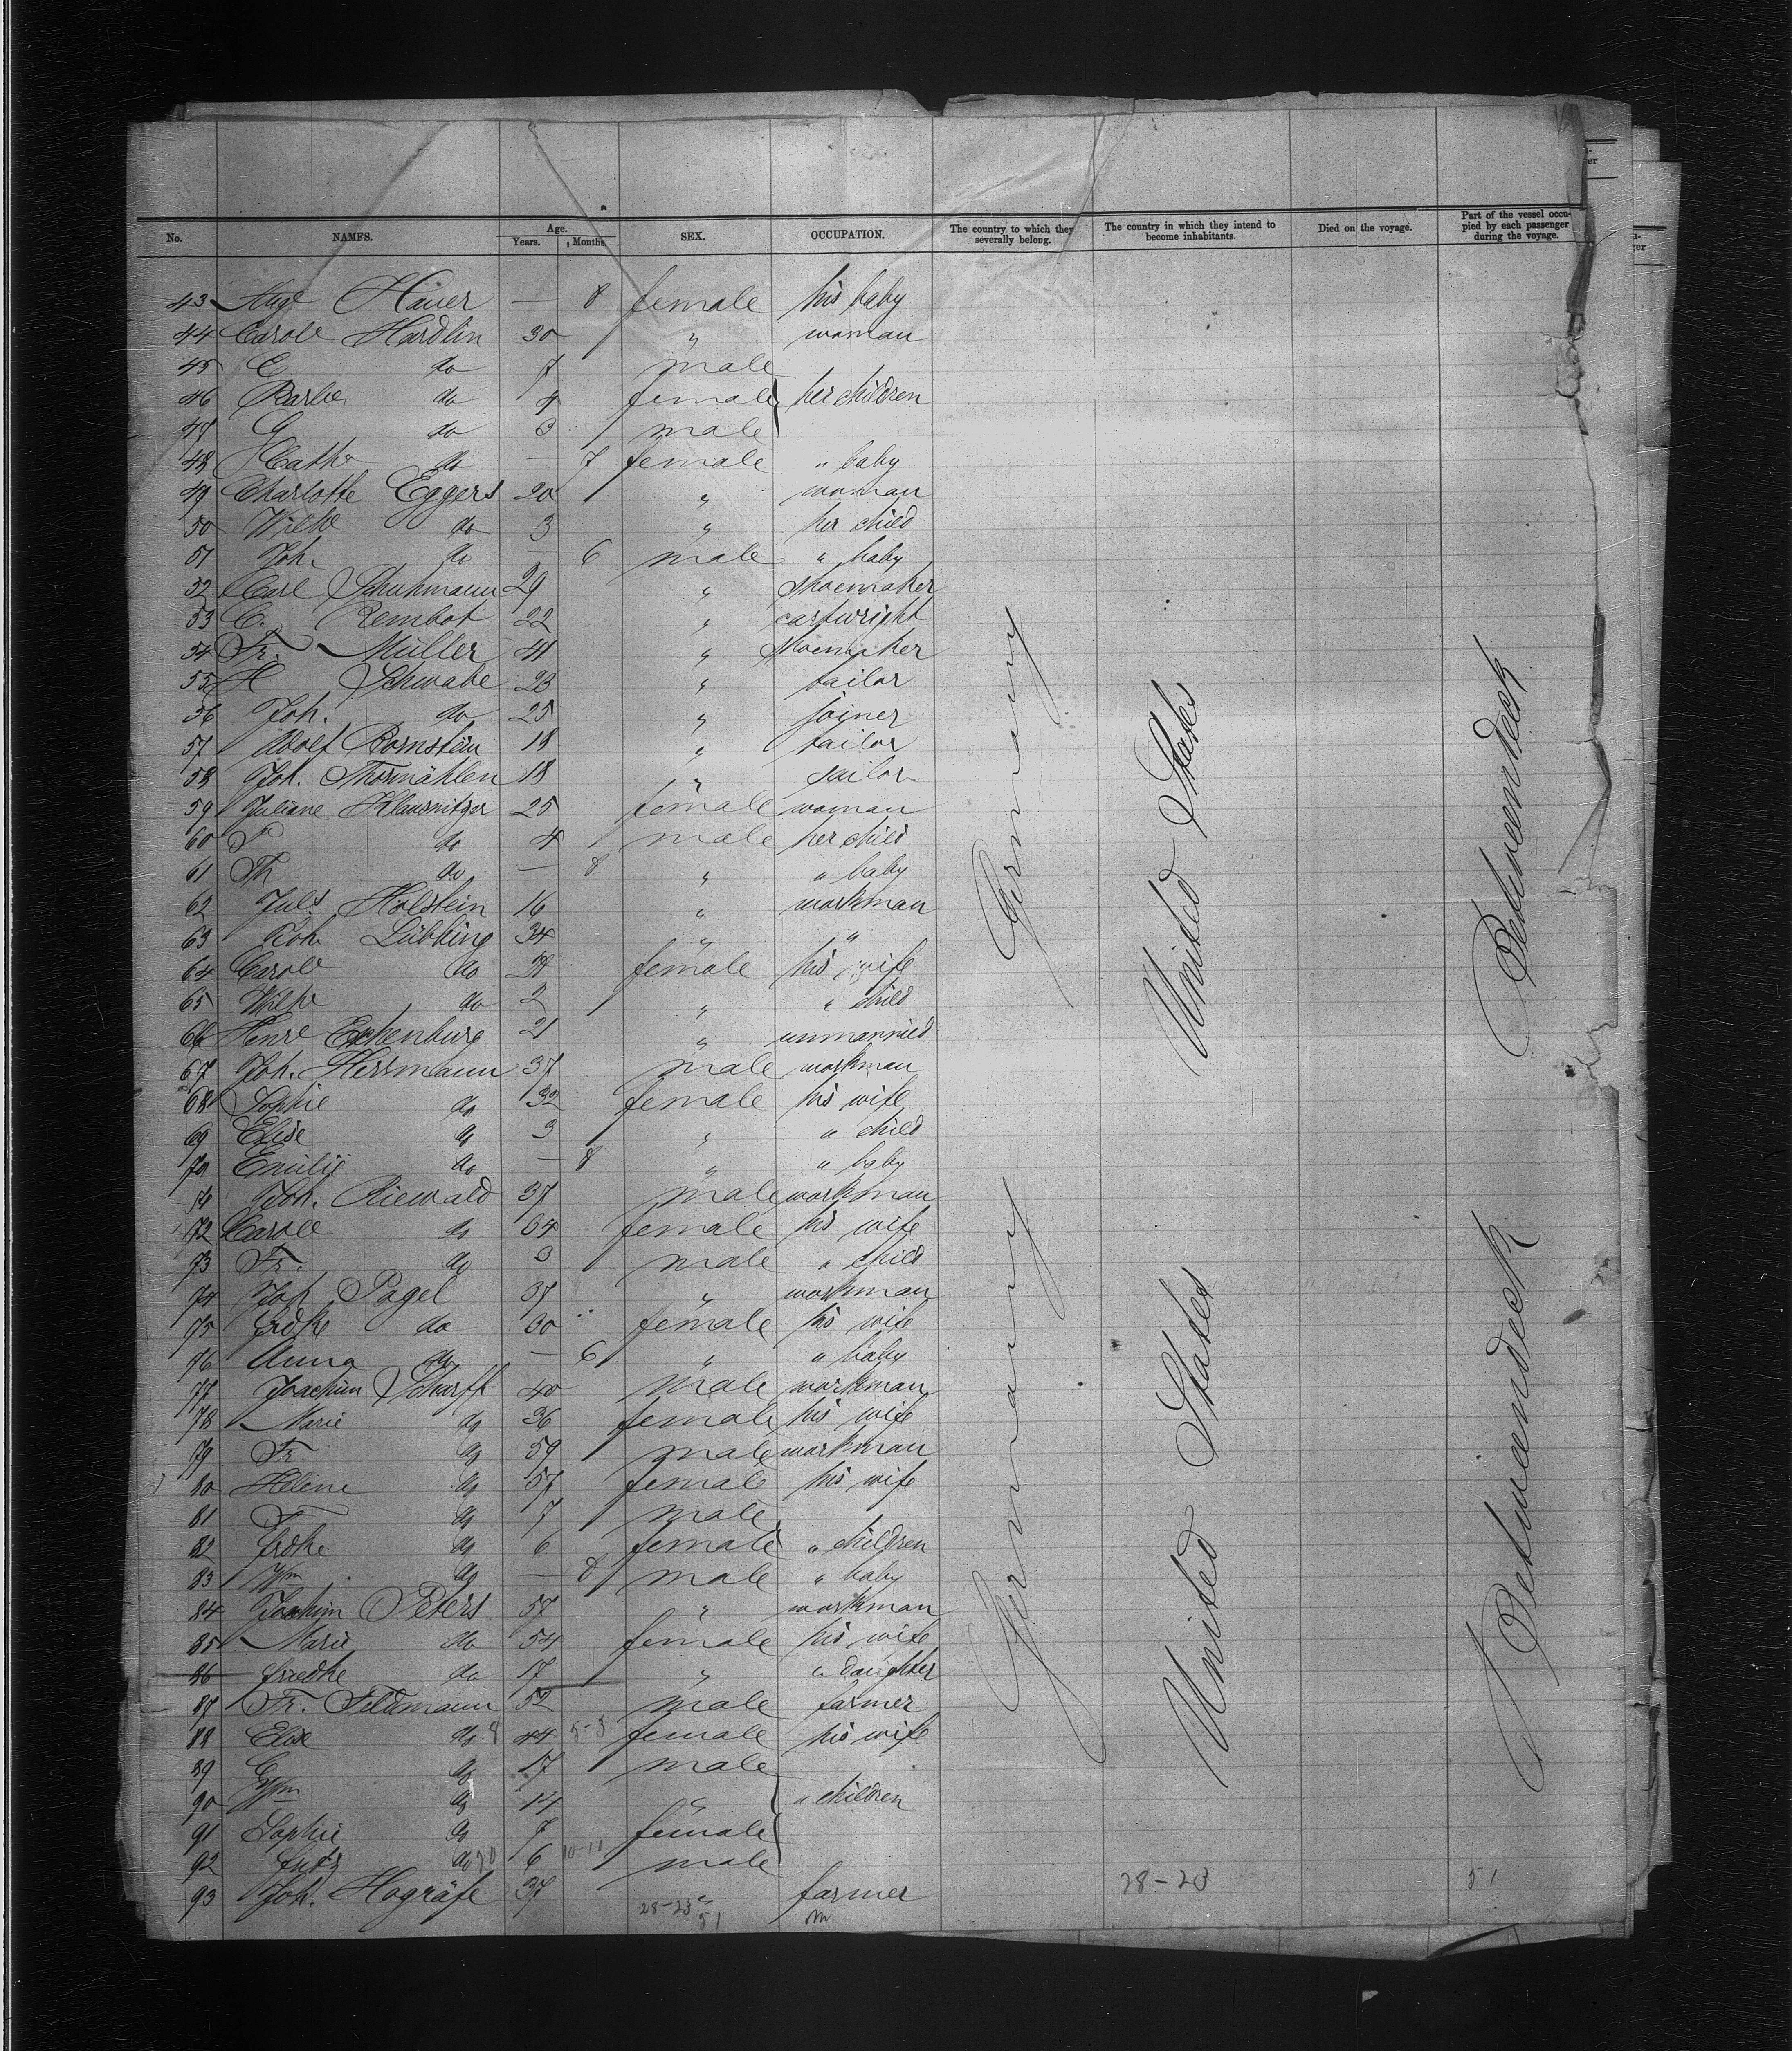 No. NAMES. Age. Years. Months. SEX. OCCUPATION. The country to which they severally belong. The country in which they intend to become inhabitants. Died on the voyage. Part of the vessel occupied by each passenger during the voyage.
43 Häuer — 8 female his baby
44 Carole Hardlin 30 " woman
45 C do 7 male
46 Barbe do 4 female her children
47 G do 3 male
48 Cathe do — 7 female " baby
49 Charlotte Eggers 20 " woman
50 Wilhe do 3 " her child
51 Joh. do — 6 male " baby
52 Carl Schuhmann 29 " shoemaker
53 C. Rembot 22 " cartwright
54 Fr. Müller 41 " shoemaker
55 H Schwabe 23 " tailor
56 Joh. do 25 " joiner
57 Adolf Bornstein 18 " tailor
58 Joh. Thormählen 18 " sailor
59 Juliane Klausnitzer 25 female woman
60 P do 4 male her child
61 Th do — 8 " " baby
62 Juls Holstein 16 " workman
63 Joh. Lübbing 34 " "
64 Carole do female his wife
65 Wilhe do 2 " " child
66 Henre Eschenburg 21 " unmarried
67 Joh. Herrmann 37 male workman
68 Sophie do 32 female his wife
69 Elise do 3 " " child
70 Emilie do — 8 " " baby
71 Joh. Riewald 37 male workman
72 Carole do 34 female his wife
73 Fr. do 3 male " child
74 Joh Pagel 37 " workman
75 Frdke do 30 female his wife
76 Anna do — 6 " " baby
77 Joachim Scharff 40 male workman
78 Marie do 36 female his wife
79 Fr do 59 male workman
80 Helene do 57 female his wife
81 F do 7 male
82 Frdke do 6 female " children
83 Wm do — 8 male " baby
84 Joachim Peters 57 " workman
85 Marie do 54 female his wife
86 Friedke do 17 " " daughter
87 Fr. Feldmann 52 male farmer
88 Elise do 44 female his wife
89 G do 17 male
90 Wm do 14 " " children
91 Sophie do 7 female
92 do 6 10-11 male
93 Joh. Hografe 37 " farmer
28-23
51
Germany
United States
Betweendeck
Germany
United States
Betweendeck
28-23
51